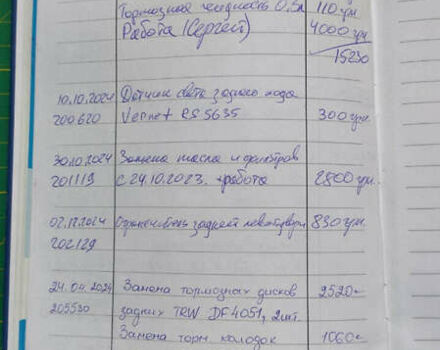 Тормозная жидкость 0,5л 110 грн
Работа (Сергей) 4000 грн
15230
10.10.2024 Датчик света заднего хода
200620 Vernet RS 5635 300 грн.
30.10.2024 Замена масла и фильтров
201119 с 24.10.2023. +работа 2800 грн.
02.12.2024 задней левой двери 830 грн
202129
24.04.2024 Замена тормозных дисков 2520=
205530 задних TRW DF4051, 2шт.
Замена торм. колодок 1060=